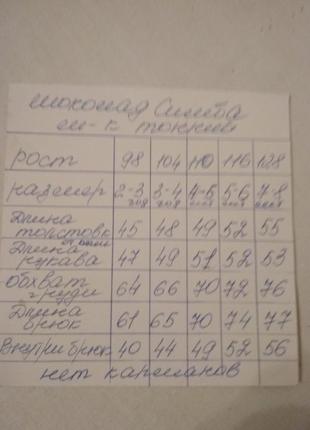 шоколад Симба
ш-к тонкий
рост 98 104 110 116 128
размер 2-3 года 3-4 года 4-5 лет 5-6 лет 7-8 лет
Длина толстовк 45 48 49 52 55
Длина рукава от шеи 47 49 51 52 53
обхват груди 64 66 70 72 76
Длина брюк 61 65 70 74 77
Внутри брюк 40 44 49 52 56
нет карманов